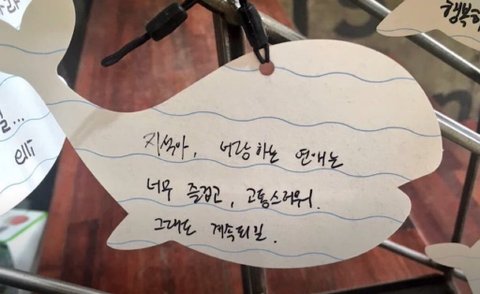 행복하
지석아, 너랑 하는 연애는
너무 즐겁고, 고통스러워.
그래도 계속되길.